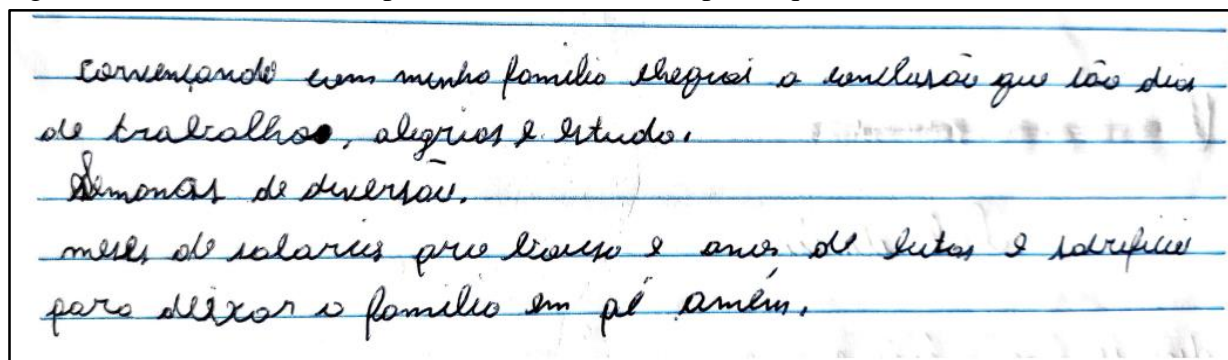 converçando com minha familia cheguei a conclusão que são dias
de trabalho, alegrias e estudo.
Semanas de diversão.
meses de salarios e anos de lutas e
para deixar a familia em pé amém.